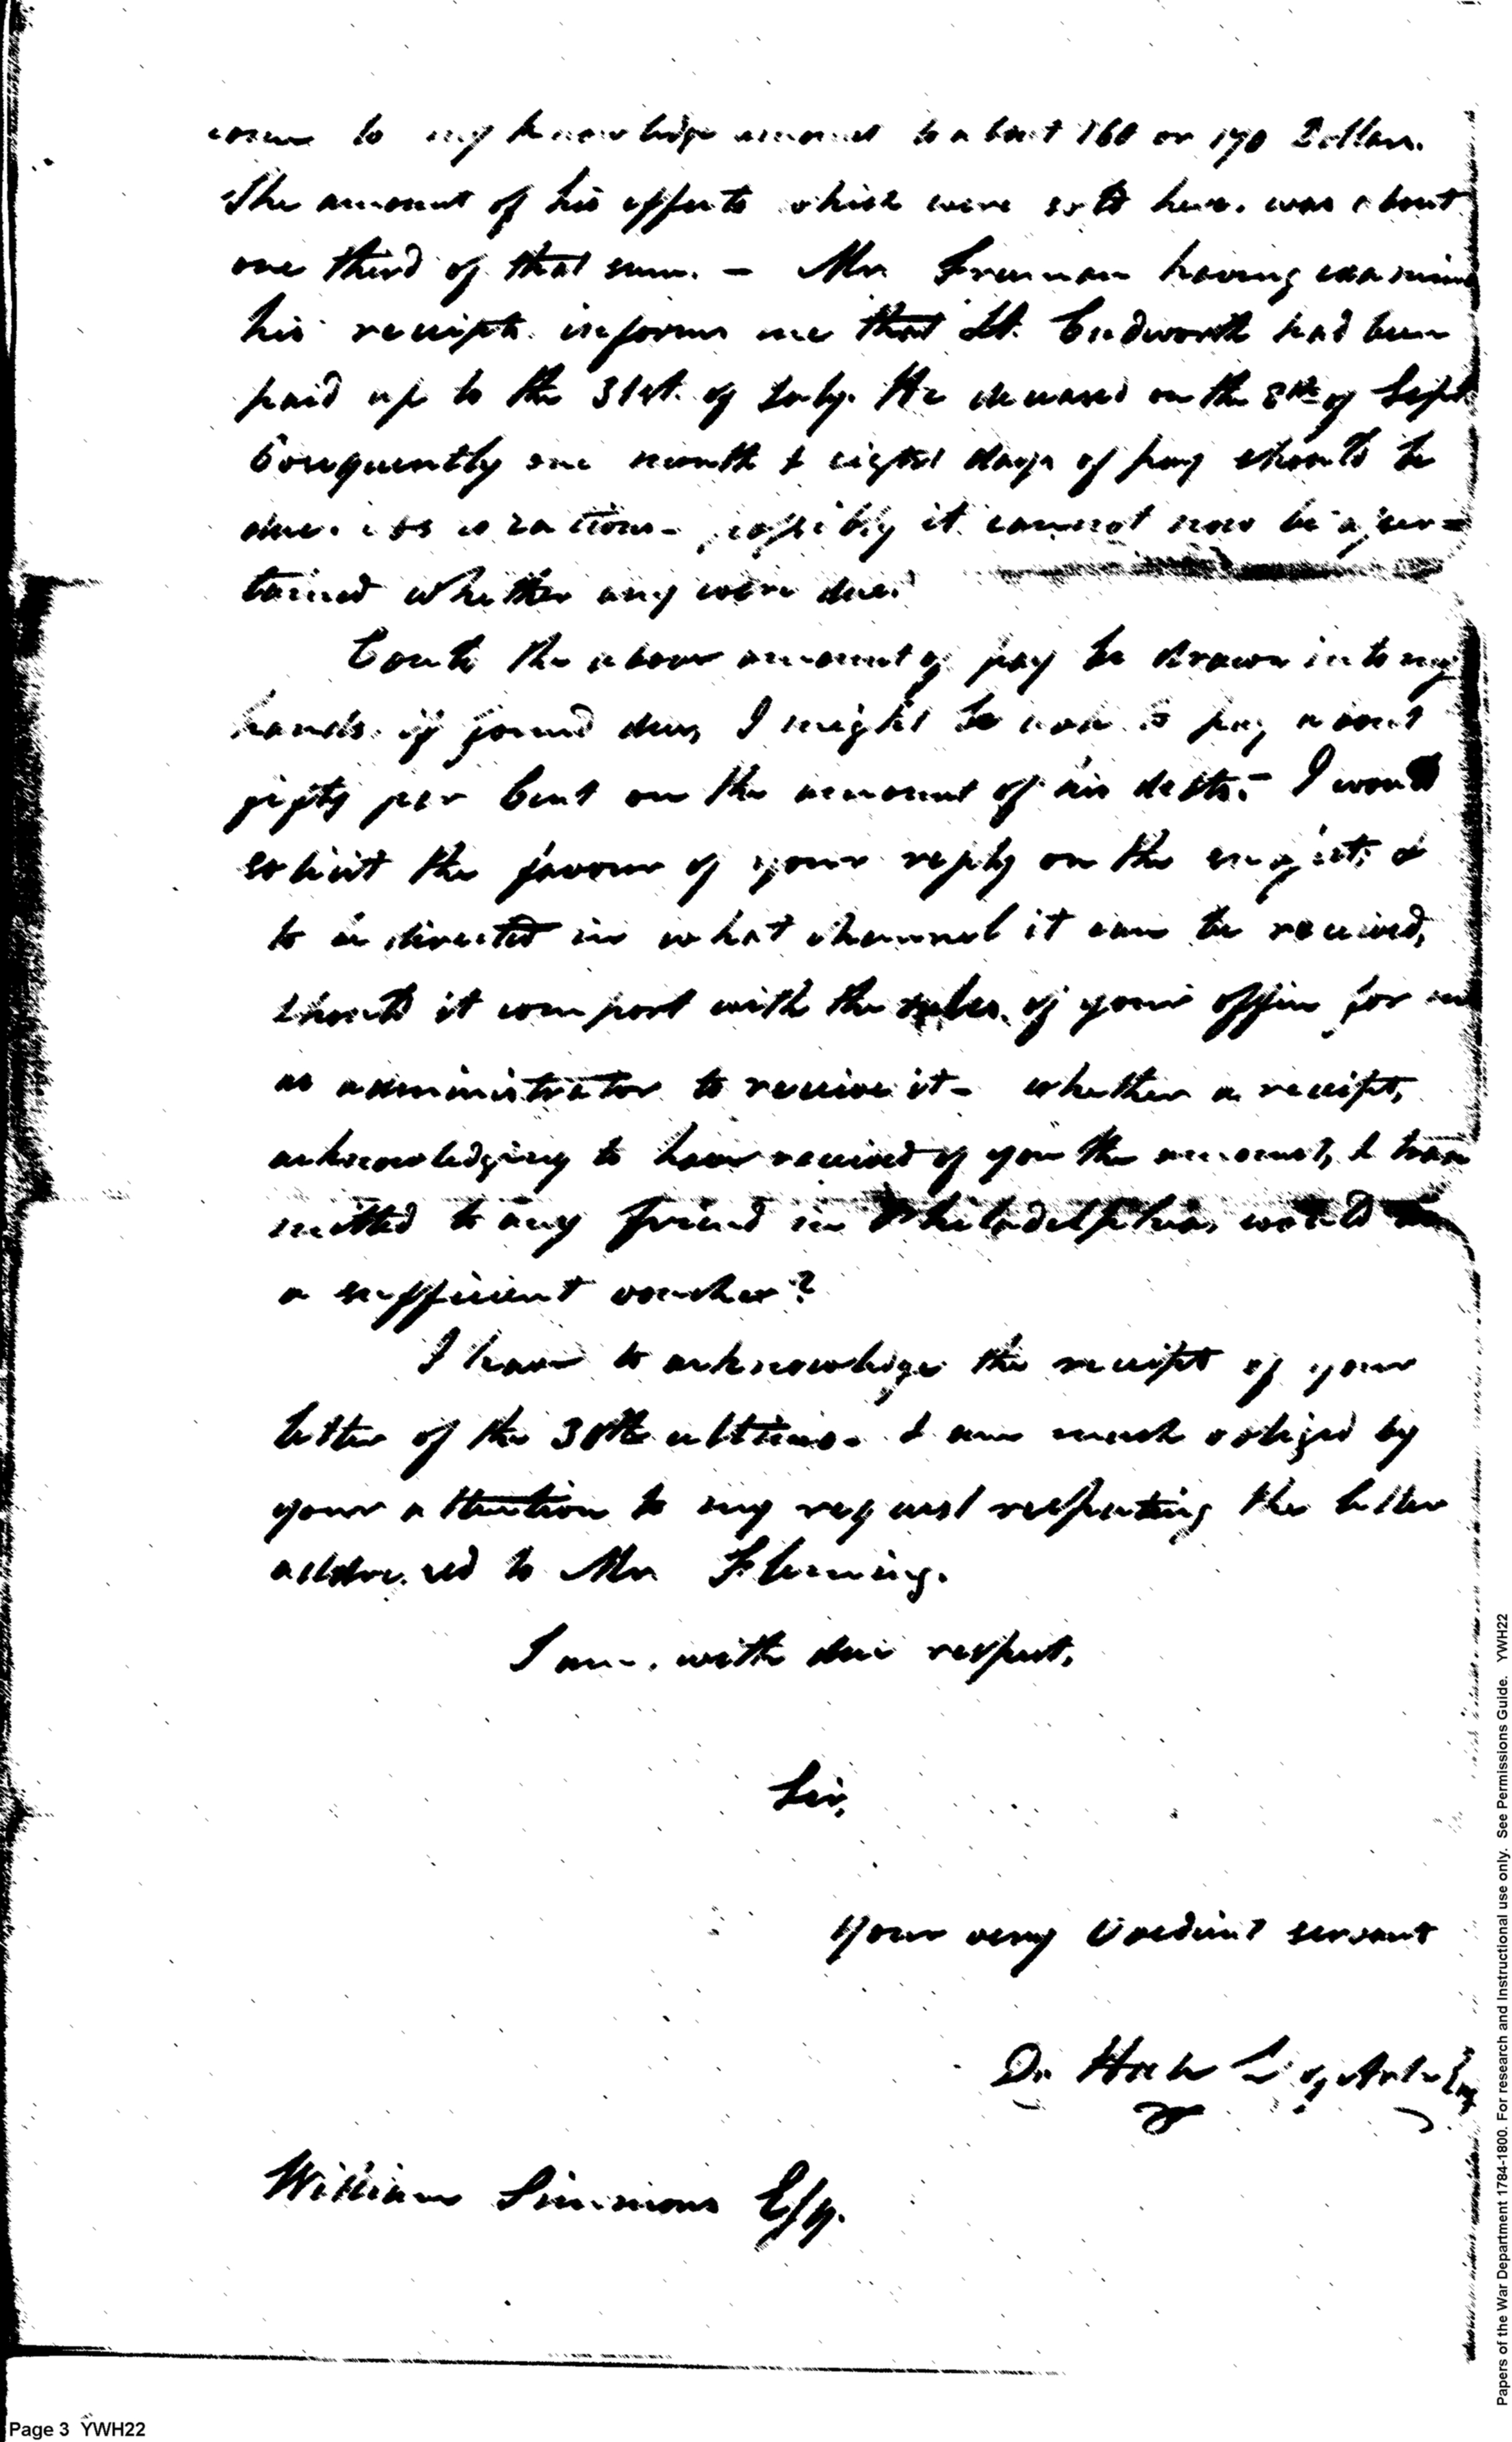 come to my knowledge amount to about 160 or 170 Dollars.
The amount of his effects which were sold here. was about
one third of that sum. – Mr. Freeman having examined
his receipts. informs me that Lt. Cudworth had been
paid up to the 31st. of July. He deceased on the 8th of Sept.
Consequently one month & eight days of pay should be
due. as to rations – possibly it cannot now be ascer=
tained whether any were due.
Could the above amount of pay be drawn into my
hands. if found due, I might be able to pay about
fifty per Cent on the amount of his debts. – I would
solicit the favour of your reply on the subject; &
to be directed in what channel it can be received,
should it comport with the rules. of your office for me
as administrator to receive it – whether a receipt,
acknowledging to have received of you the amount, & trans
mitted to any friend in Philadelphia, would be
a sufficient voucher?
I have to acknowledge the receipt of your
letter of the 30th ultimo. I am much obliged by
your attention to my request respecting the letter
addressed to Mr. Fleming.
I am. with due respect,
Sir,
Your very Obedient servant
William Simmons Esq.
Page 3 YWH22
Papers of the War Department 1784-1800. For research and Instructional use only. See Permissions Guide. YWH22